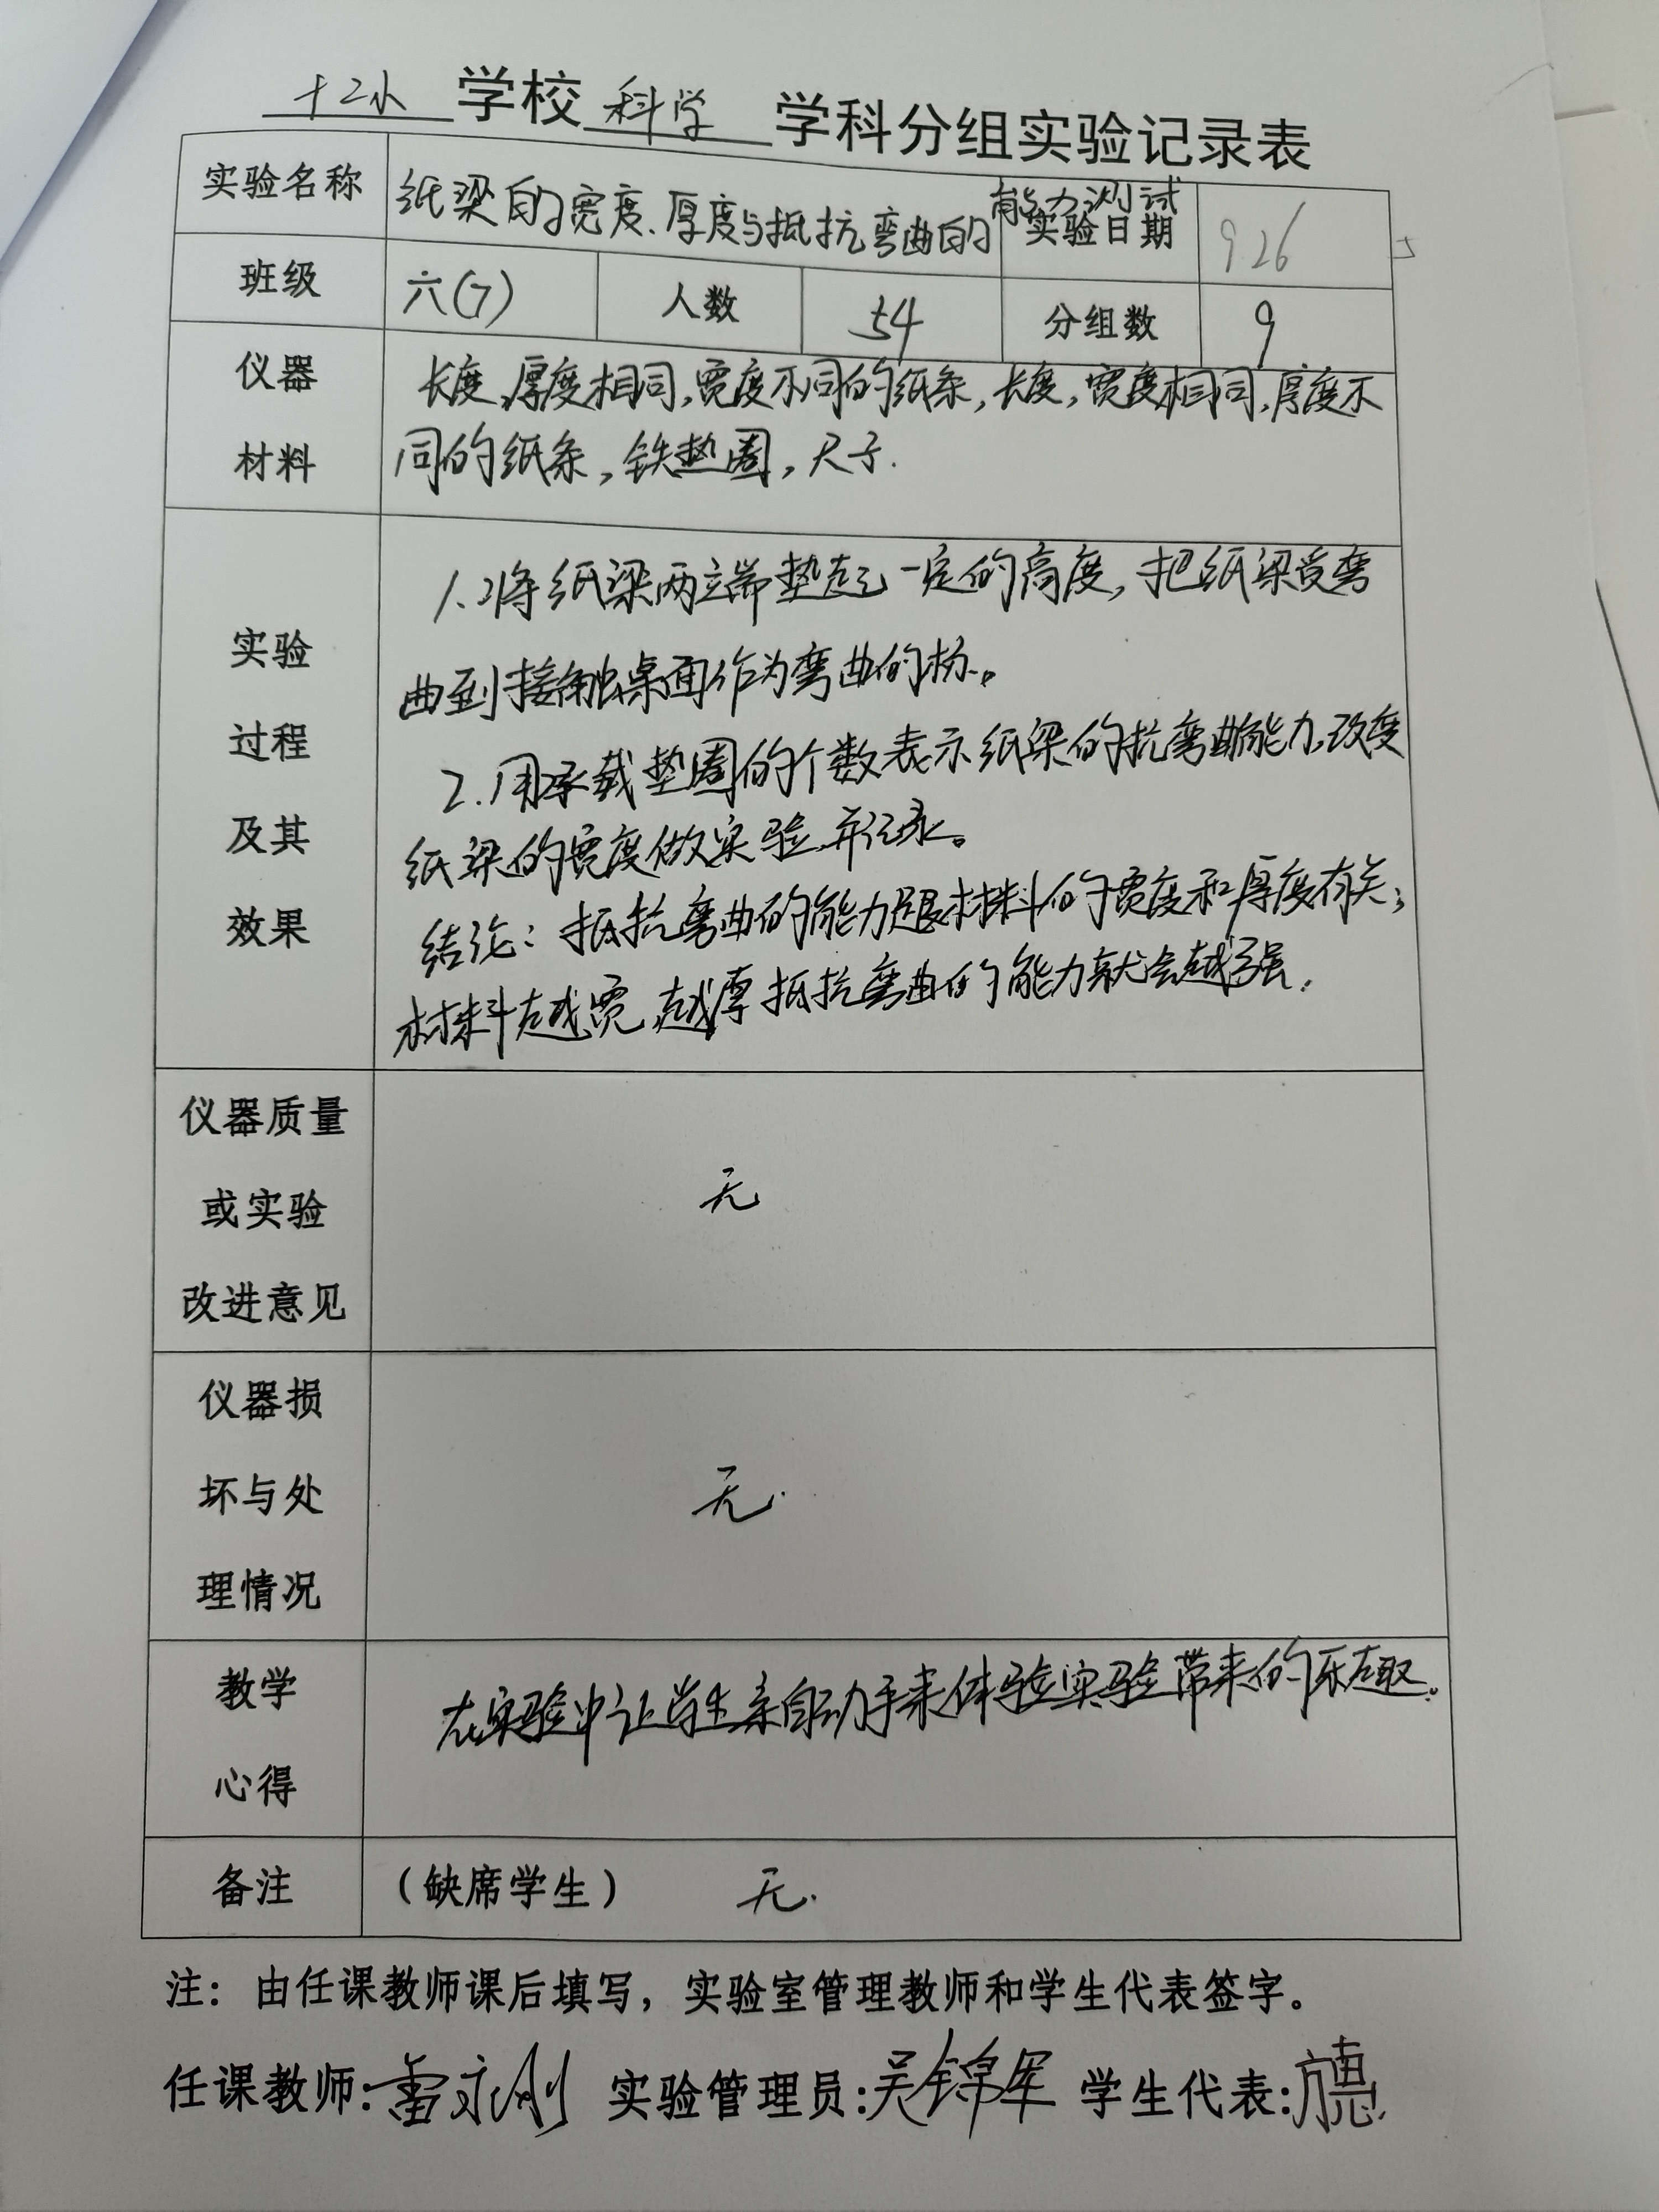 十二小 学校 科学 学科分组实验记录表
实验名称 纸梁的宽度、厚度与抵抗弯曲的能力测试 实验日期 9.26
班级 六(7) 人数 54 分组数 9
仪器 长度,厚度相同,宽度不同的纸条,长度,宽度相同,厚度不
材料 同的纸条,铁垫圈,尺子.
1.将纸梁两端垫起一定的高度,把纸梁受弯
实验
曲到接触桌面作为弯曲的标.。
过程
2.用承载垫圈的个数表示纸梁的抗弯曲能力,改变
及其 纸梁的宽度做实验,并记录。
效果 结论:抵抗弯曲的能力跟材料的宽度和厚度有关;
材料越宽,越厚抵抗弯曲的能力就会越强.
仪器质量
或实验 无
改进意见
仪器损
坏与处 无.
理情况
教学 在实验中让学生亲自动手来体验实验带来的乐趣。
心得
备注 (缺席学生) 无.
注:由任课教师课后填写,实验室管理教师和学生代表签字。
任课教师:雷永刚 实验管理员:吴锦军 学生代表: